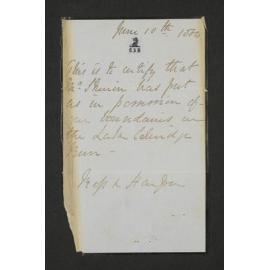 June 10th 18
This is to certify that
has put
us in possession of
our boundaries in
the Lake Coleridge
Run —
Ross & Harper